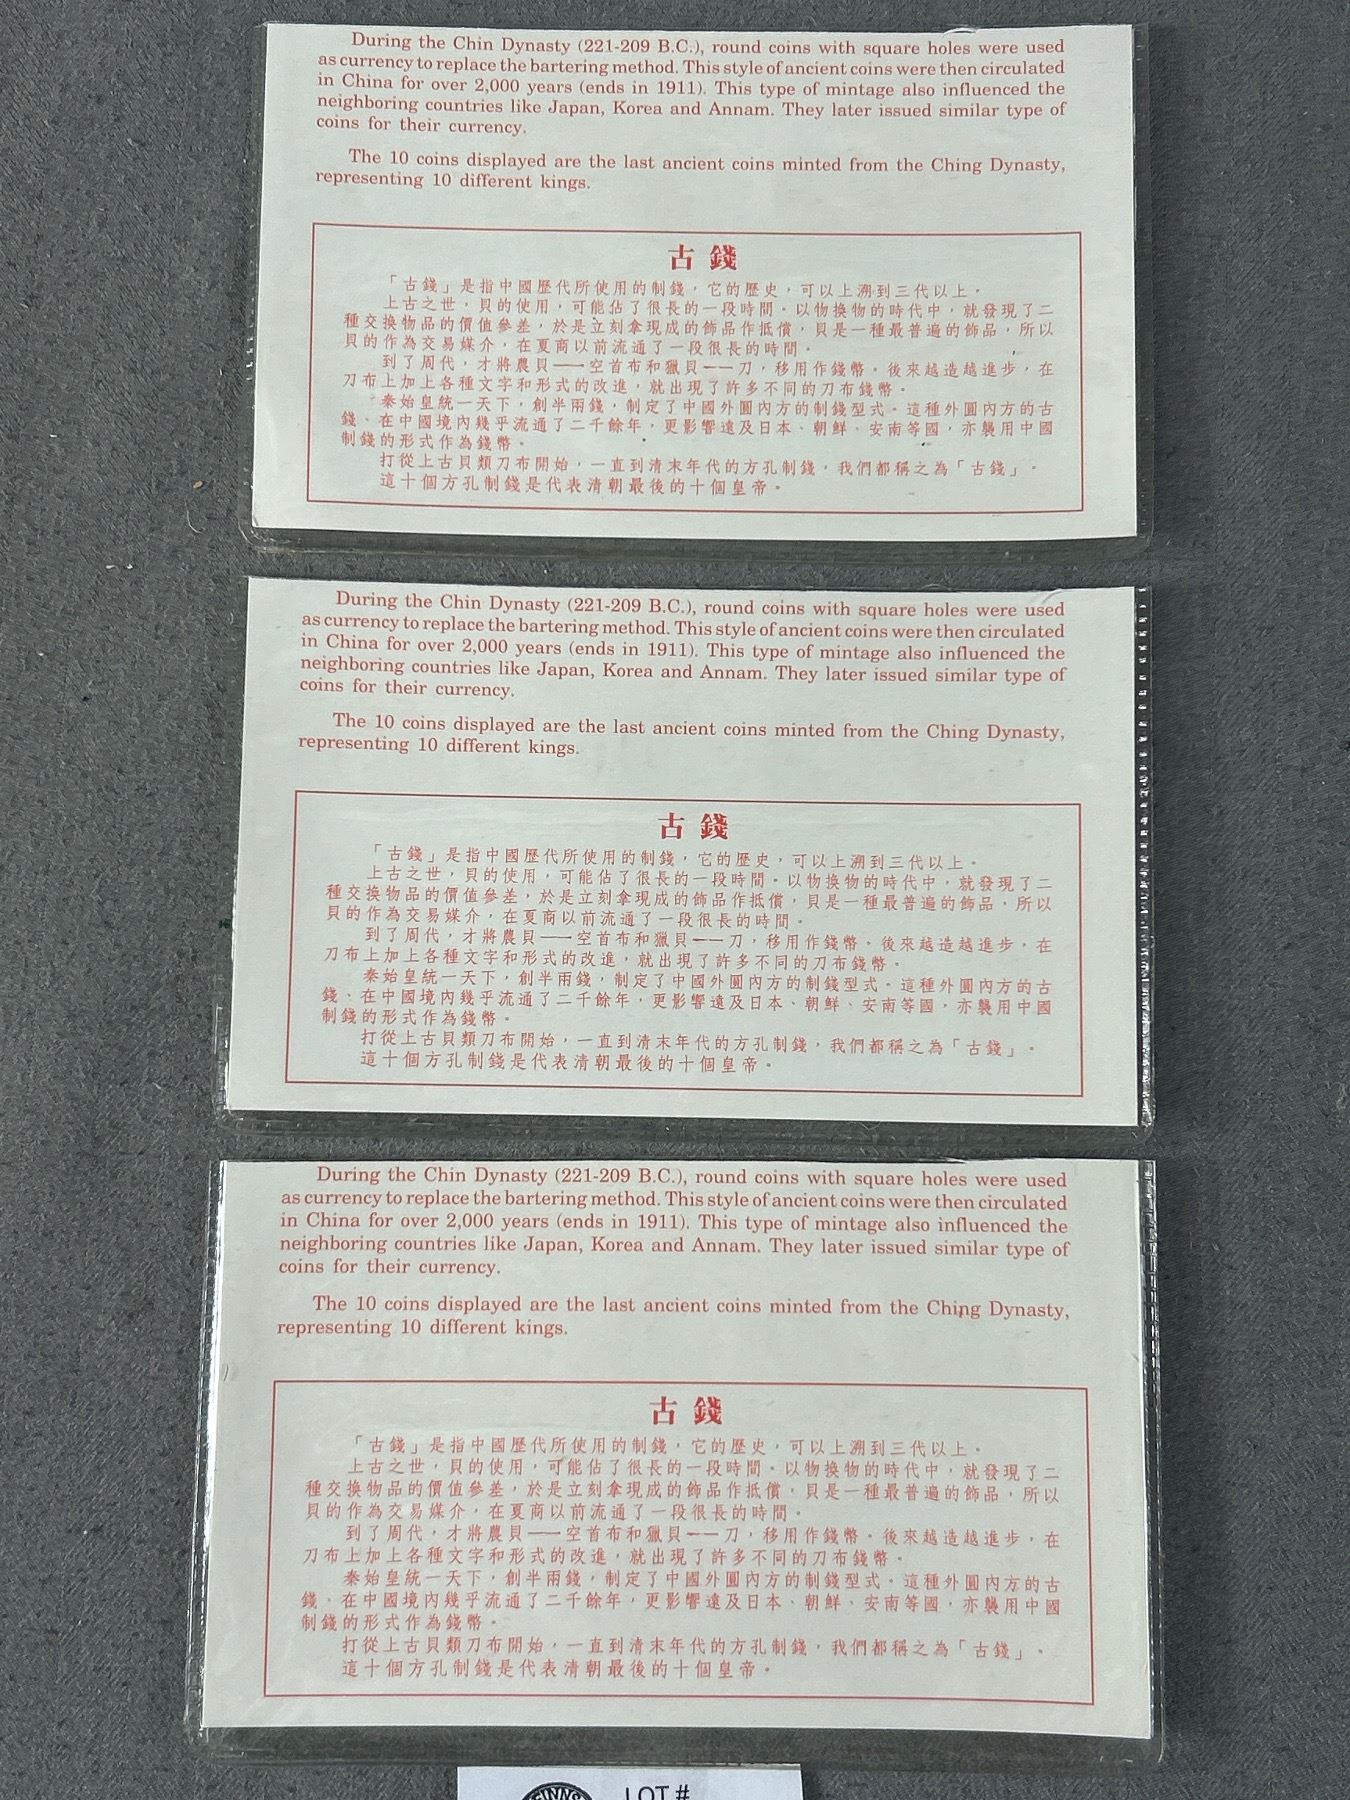 During the Chin Dynasty (221-209 B.C.), round coins with square holes were used
as currency to replace the bartering method. This style of ancient coins were then circulated
in China for over 2,000 years (ends in 1911). This type of mintage also influenced the
neighboring countries like Japan, Korea and Annam. They later issued similar type of
coins for their currency.
The 10 coins displayed are the last ancient coins minted from the Ching Dynasty,
representing 10 different kings.
古錢
「古錢」是指中國歷代所使用的制錢,它的歷史,可以上溯到三代以上。
上古之世,貝的使用,可能佔了很長的一段時間。以物換物的時代中,就發現了二
種交換物品的價值參差,於是立刻拿現成的飾品作抵償,貝是一種最普遍的飾品,所以
貝的作為交易媒介,在夏商以前流通了一段很長的時間。
到了周代,才將農貝——空首布和獵貝——刀,移用作錢幣。後來越造越進步,在
刀布上加上各種文字和形式的改進,就出現了許多不同的刀布錢幣。
秦始皇統一天下,創半兩錢,制定了中國外圓內方的制錢型式。這種外圓內方的古
錢、在中國境內幾乎流通了二千餘年,更影響遠及日本、朝鮮、安南等國,亦襲用中國
制錢的形式作為錢幣。
打從上古貝類刀布開始,一直到清末年代的方孔制錢,我們都稱之為「古錢」。
這十個方孔制錢是代表清朝最後的十個皇帝。
During the Chin Dynasty (221-209 B.C.), round coins with square holes were used
as currency to replace the bartering method. This style of ancient coins were then circulated
in China for over 2,000 years (ends in 1911). This type of mintage also influenced the
neighboring countries like Japan, Korea and Annam. They later issued similar type of
coins for their currency.
The 10 coins displayed are the last ancient coins minted from the Ching Dynasty,
representing 10 different kings.
古錢
「古錢」是指中國歷代所使用的制錢,它的歷史,可以上溯到三代以上。
上古之世,貝的使用,可能佔了很長的一段時間。以物換物的時代中,就發現了二
種交換物品的價值參差,於是立刻拿現成的飾品作抵償,貝是一種最普遍的飾品,所以
貝的作為交易媒介,在夏商以前流通了一段很長的時間。
到了周代,才將農貝——空首布和獵貝——刀,移用作錢幣。後來越造越進步,在
刀布上加上各種文字和形式的改進,就出現了許多不同的刀布錢幣。
秦始皇統一天下,創半兩錢,制定了中國外圓內方的制錢型式。這種外圓內方的古
錢、在中國境內幾乎流通了二千餘年,更影響遠及日本、朝鮮、安南等國,亦襲用中國
制錢的形式作為錢幣。
打從上古貝類刀布開始,一直到清末年代的方孔制錢,我們都稱之為「古錢」。
這十個方孔制錢是代表清朝最後的十個皇帝。
During the Chin Dynasty (221-209 B.C.), round coins with square holes were used
as currency to replace the bartering method. This style of ancient coins were then circulated
in China for over 2,000 years (ends in 1911). This type of mintage also influenced the
neighboring countries like Japan, Korea and Annam. They later issued similar type of
coins for their currency.
The 10 coins displayed are the last ancient coins minted from the Ching Dynasty,
representing 10 different kings.
古錢
「古錢」是指中國歷代所使用的制錢,它的歷史,可以上溯到三代以上。
上古之世,貝的使用,可能佔了很長的一段時間。以物換物的時代中,就發現了二
種交換物品的價值參差,於是立刻拿現成的飾品作抵償,貝是一種最普遍的飾品,所以
貝的作為交易媒介,在夏商以前流通了一段很長的時間。
到了周代,才將農貝——空首布和獵貝——刀,移用作錢幣。後來越造越進步,在
刀布上加上各種文字和形式的改進,就出現了許多不同的刀布錢幣。
秦始皇統一天下,創半兩錢,制定了中國外圓內方的制錢型式。這種外圓內方的古
錢、在中國境內幾乎流通了二千餘年,更影響遠及日本、朝鮮、安南等國,亦襲用中國
制錢的形式作為錢幣。
打從上古貝類刀布開始,一直到清末年代的方孔制錢,我們都稱之為「古錢」。
這十個方孔制錢是代表清朝最後的十個皇帝。
LOT #